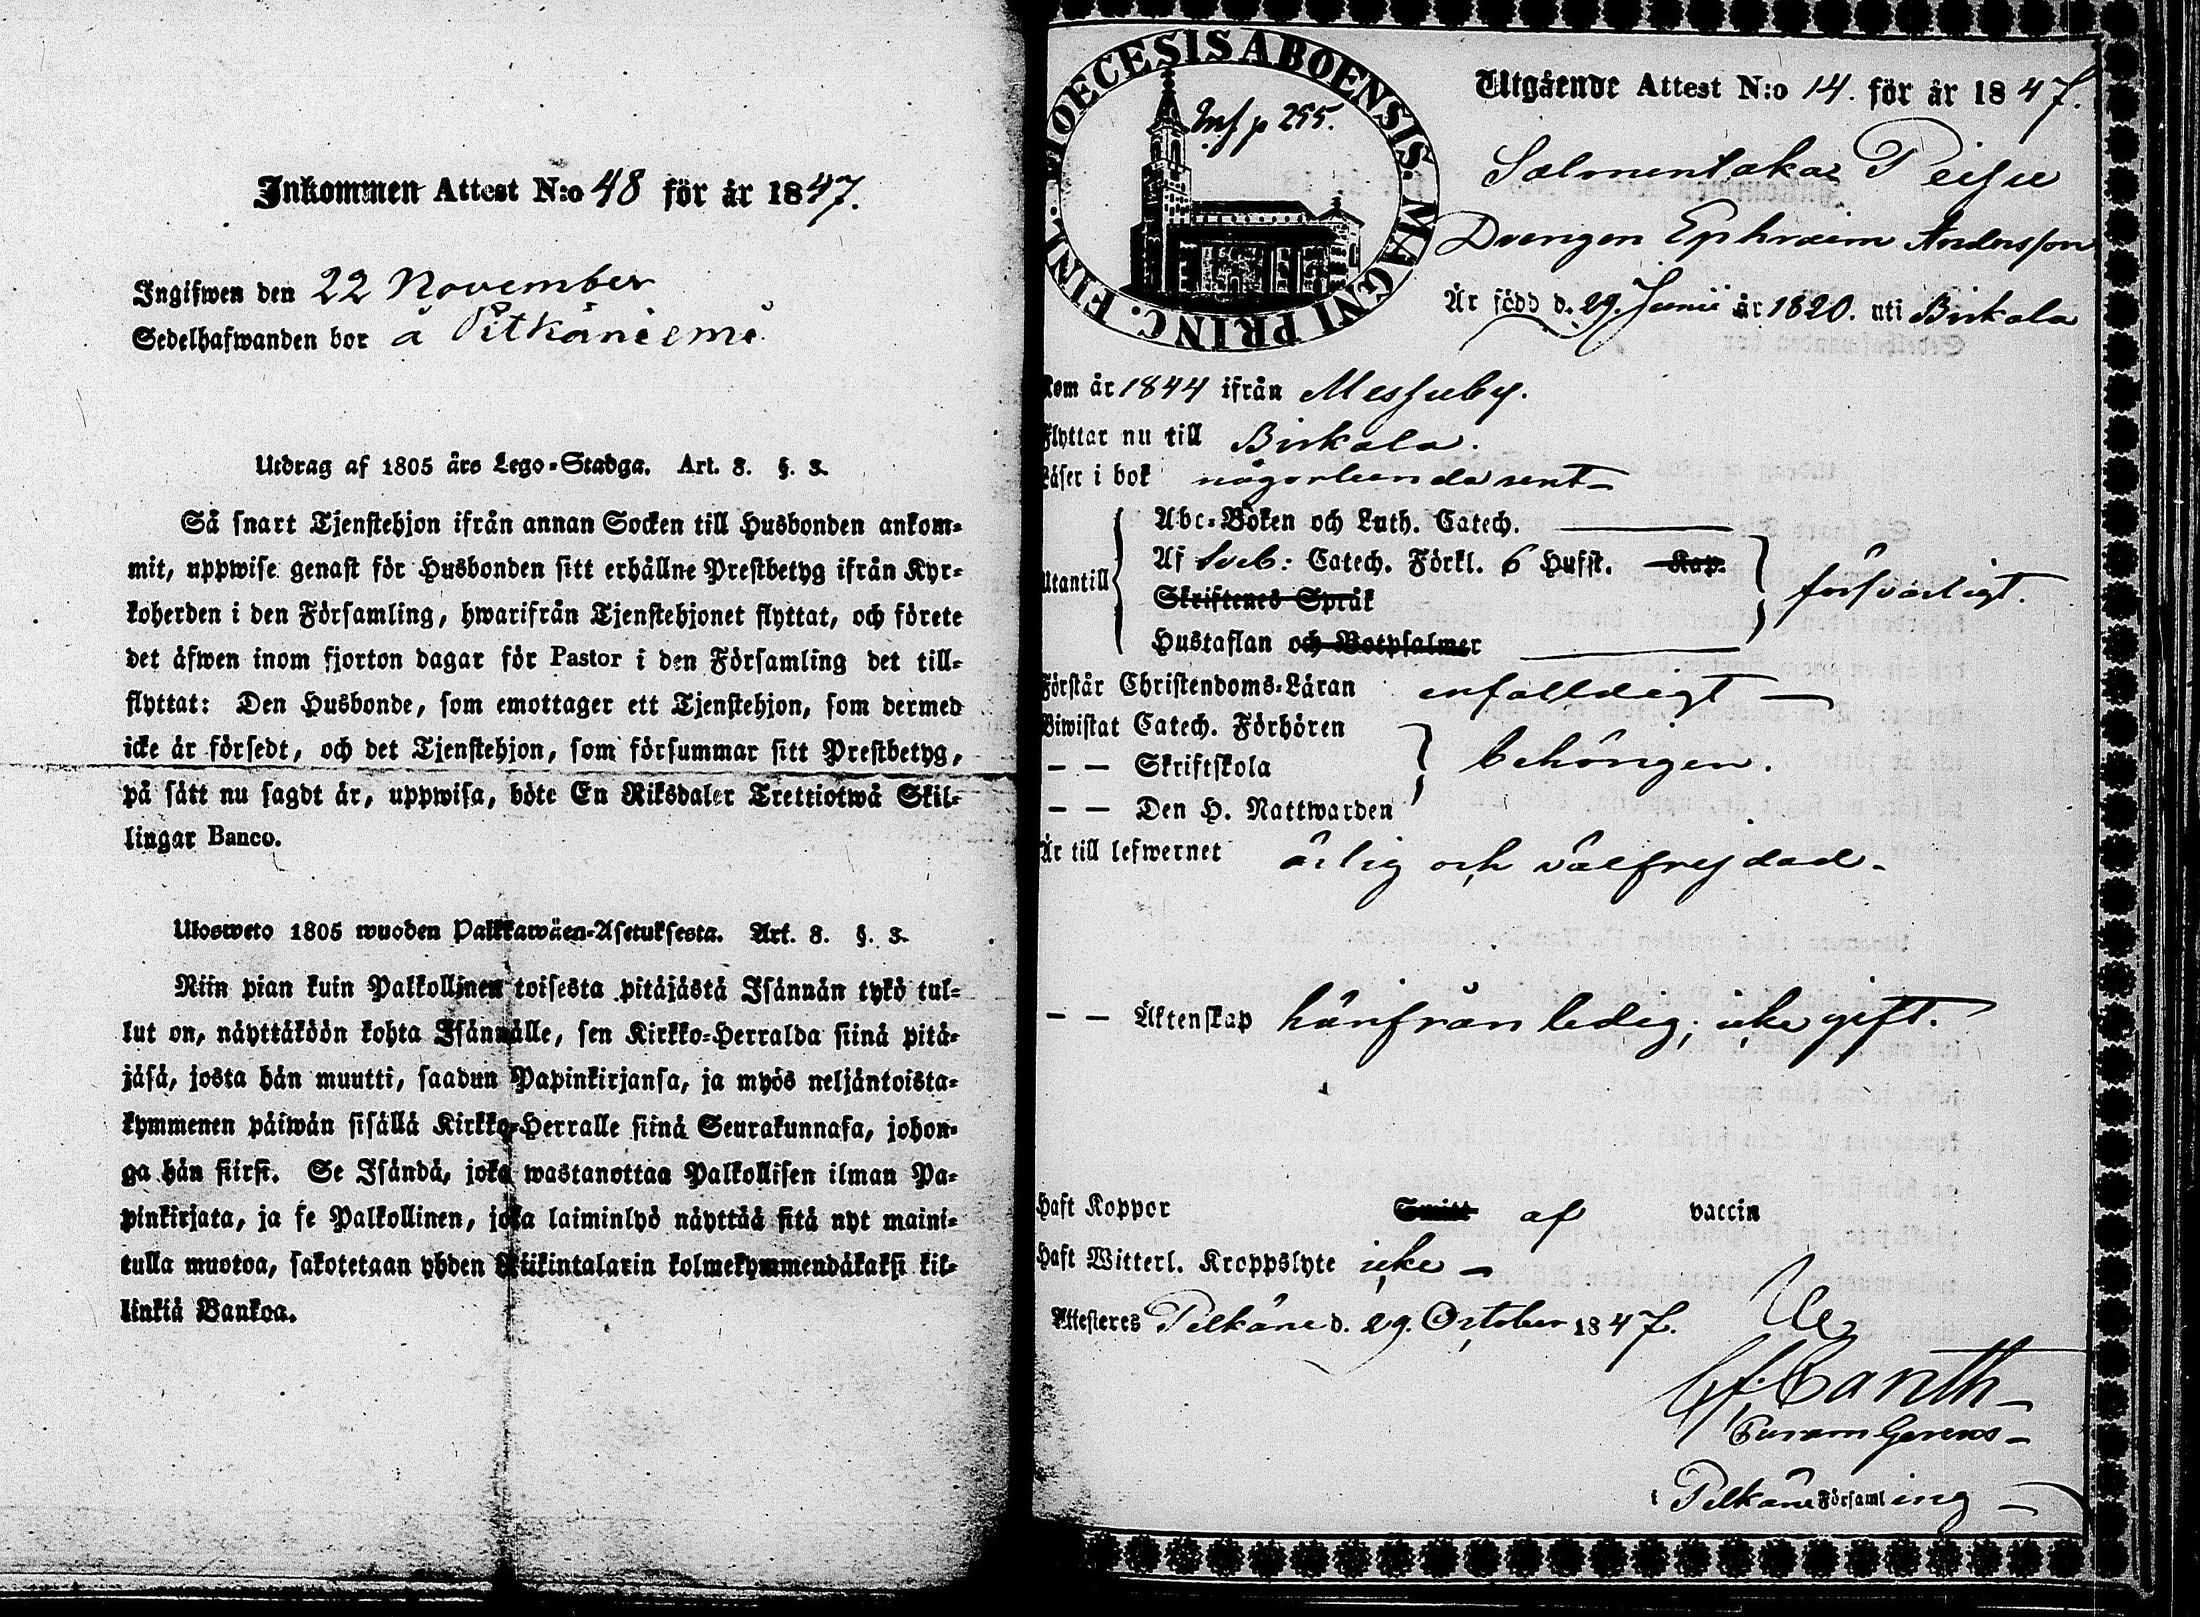 Inkommen Attest N:o 48 för år 1847.
Ingifwen den 22 November
Sedelhafwanden bor å Pitkäniemi
Utdrag af 1805 års Lego-Stadga. Art. 8. §. 3.
Så snart Tjenstehjon ifrån annan Socken till Husbonden ankom-
mit, uppwise genast för Husbonden sitt erhållne Prestbetyg ifrån Kyr-
koherden i den Församling, hwarifrån Tjenstehjonet flyttat, och förete
det äfwen inom fjorton dagar för Pastor i den Församling det till-
flyttat: Den Husbonde, som emottager ett Tjenstehjon, som dermed
icke är försedt, och det Tjenstehjon, som försummar sitt Prestbetyg,
på sätt nu sagdt är, uppwisa, böte En Riksdaler Trettiotwå Skil-
lingar Banco.
Ulosweto 1805 wuoden Palkkawäen-Asetuksesta. Art. 8. §. 3.
Niin pian kuin Palkollinen toisesta pitäjästä Isännän tykö tul-
lut on, näyttäköön kohta Isännälle, sen Kirkko-Herralda siinä pitä-
jäsä, josta hän muutti, saadun Papinkirjansa, ja myös neljäntoista-
kymmenen päiwän sisällä Kirkko-Herralle siinä Seurakunnasa, johon-
ga hän siirsi. Se Isändä, joka wastanottaa Palkollisen ilman Pa-
pinkirjata, ja se Palkollinen, joka laiminlyö näyttää sitä nyt maini-
tulla muotoa, sakotetaan yhden Riikintalarin kolmekymmendäkaksi kil-
linkiä Bankoa.
DIOECESIS ABOENSIS. MAGNI PRINC. FINL.
Inf p 255.
Utgående Attest N:o 14. för år 1847.
Salmentaka Peisu
Drengen Ephraim Andersson
Är född d. 29. Junii år 1820. uti Birkala
Kom år 1844 ifrån Messuby.
Flyttar nu till Birkala.
Läser i bok någorlunda rent
Utantill
Abc-Boken och Luth. Catech.
Af Sveb: Catech. Förkl. 6 Hufst. Kap.
Skriftenes Språk
Hustaflan och Botpsalmer
försvarligt.
Förstår Christendoms-Läran enfalldigt
Biwistat Catech. Förhören
— — Skriftskola
— — Den H. Nattwarden
behörigen.
Är till lefwernet ärlig och välfrejdad.
— — Äktenskap härifrån ledig; icke gift.
Haft Koppor Smitt af vaccin
Haft Witterl. Kroppslyte icke
Attesteres Pelkäne d. 29. October 1847.
Canth
Curam Gerens
i Pelkäne Församling